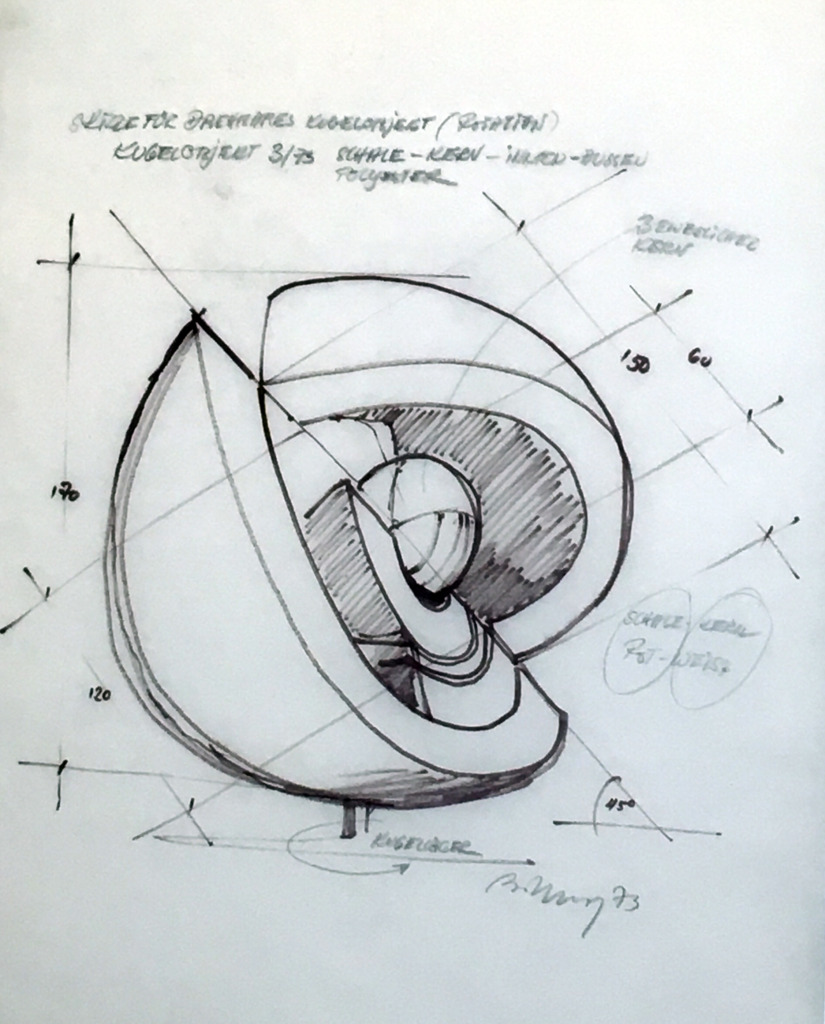 SKIZZE FÜR DREHBARES KUGELOBJEKT (ROTATION)
KUGELOBJEKT 3/73 SCHALE-KERN-INNEN-AUSSEN
POLYESTER
BEWEGLICHER
KERN
150
60
170
SCHALE-KERN
ROT-WEISS
120
45°
KUGELLAGER
73